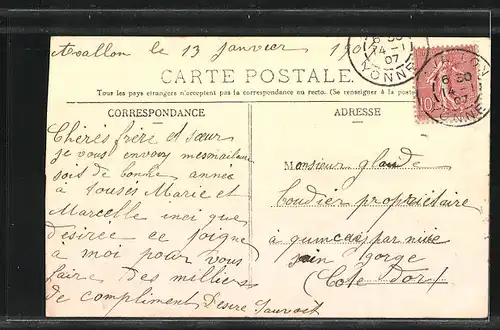 Avallon le 13 janvier 190
CARTE POSTALE
Tous les pays étrangers n'acceptent pas la correspondance au recto. (Se renseigner à la poste
CORRESPONDANCE
ADRESSE
Chères frère et sœur
je vous envoy mes
soit de bonne année
à touses Marie et
Marcelle inci que
désirée ce joigne
à moi pour vous
faire des milliers
de compliment Desire
Monsieur glaude
boudier propriétaire
à quincey par nuie
sain gorge
Cote Dor
6 30
14 -1
07
YONNE
10
6 30
07
YONNE